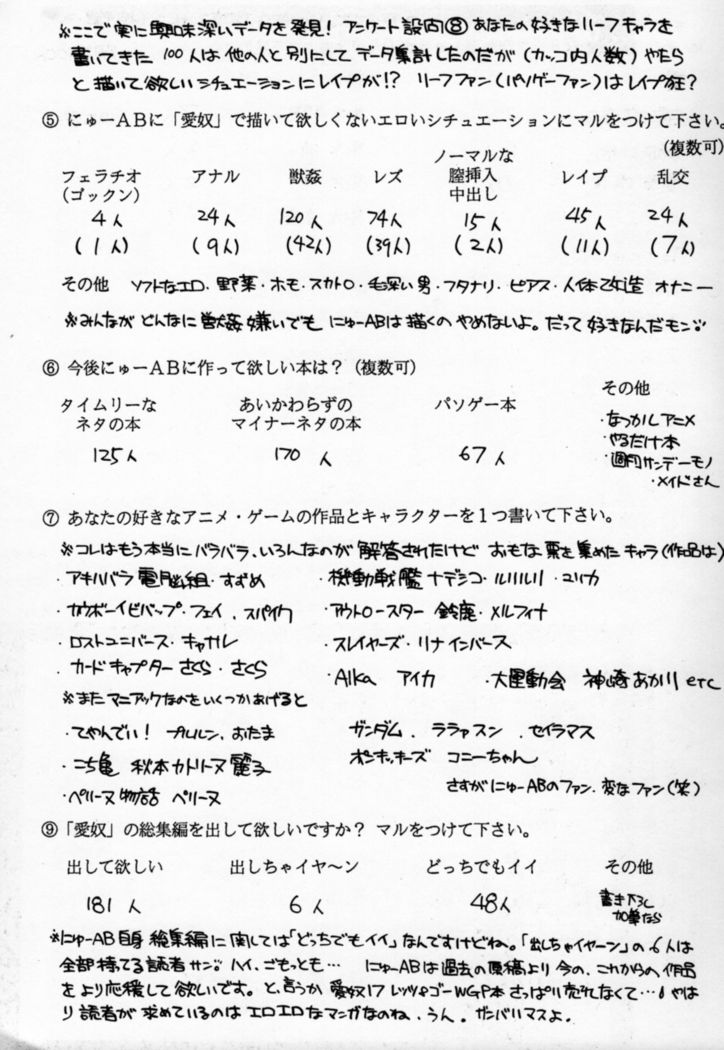 ※ここで実に興味深いデータを発見! アンケート設問⑧あなたの好きなリーフキャラを
書いてきた100人は他の人と別にしてデータ集計したのだが(カッコ内人数)やたら
と描いて欲しいシチュエーションにレイプが!? リーフファン(パソゲーファン)はレイプ狂?
⑤ にゅーABに「愛奴」で描いて欲しくないエロいシチュエーションにマルをつけて下さい。
(複数可)
フェラチオ(ゴックン) アナル 獣姦 レズ ノーマルな膣挿入中出し レイプ 乱交
4人 24人 120人 74人 15人 45人 24人
(1人) (9人) (42人) (39人) (2人) (11人) (7人)
その他 ソフトなエロ・野菜・ホモ・スカトロ・毛深い男・フタナリ・ピアス・人体改造 オナニー
※みんながどんなに獣姦嫌いでもにゅーABは描くのやめないよ。だって好きなんだモン
⑥ 今後にゅーABに作って欲しい本は?(複数可)
タイムリーなネタの本 あいかわらずのマイナーネタの本 パソゲー本 その他
125人 170人 67人
・なつかしアニメ
・やるだけ本
・週刊サンデーモノ
・メイドさん
⑦ あなたの好きなアニメ・ゲームの作品とキャラクターを1つ書いて下さい。
※コレはもう本当にバラバラ、いろんなのが解答されたけど おもな票を集めたキャラ(作品は)
・アキハバラ電脳組・すずめ ・機動戦艦ナデシコ・ルリルリ・ユリカ
・カウボーイビバップ・フェイ、スパイク ・アウトロースター 鈴鹿・メルフィナ
・ロストユニバース・キャナル ・スレイヤーズ・リナインバース
・カードキャプターさくら・さくら ・Alka アイカ ・大運動会 神崎あかり etc
※またマニアックなのをいくつかあげると
・てやんでい! プルルン、おたま ガンダム、ララァスン、セイラマス
・こち亀 秋本カトリーヌ麗子 ポンキッキーズ コニーちゃん
・ペリーヌ物語 ペリーヌ さすがにゅーABのファン、変なファン(笑)
⑨「愛奴」の総集編を出して欲しいですか? マルをつけて下さい。
出して欲しい 出しちゃイヤ〜ン どっちでもイイ その他
181人 6人 48人 書き下ろし加筆なら
※にゅーAB自身総集編に関しては「どっちでもイイ」なんですけどね。「出しちゃイヤーン」の6人は
全部持てる読者サン。ハイ、ごもっとも… にゅーABは過去の原稿より今の、これからの、作品
をより応援して欲しいです。と、言うか愛奴17レッツ&ゴーWGP本さっぱり売れなくて…。やは
り読者が求めているのはエロエロなマンガなのね、うん。ガンバリマスよ。